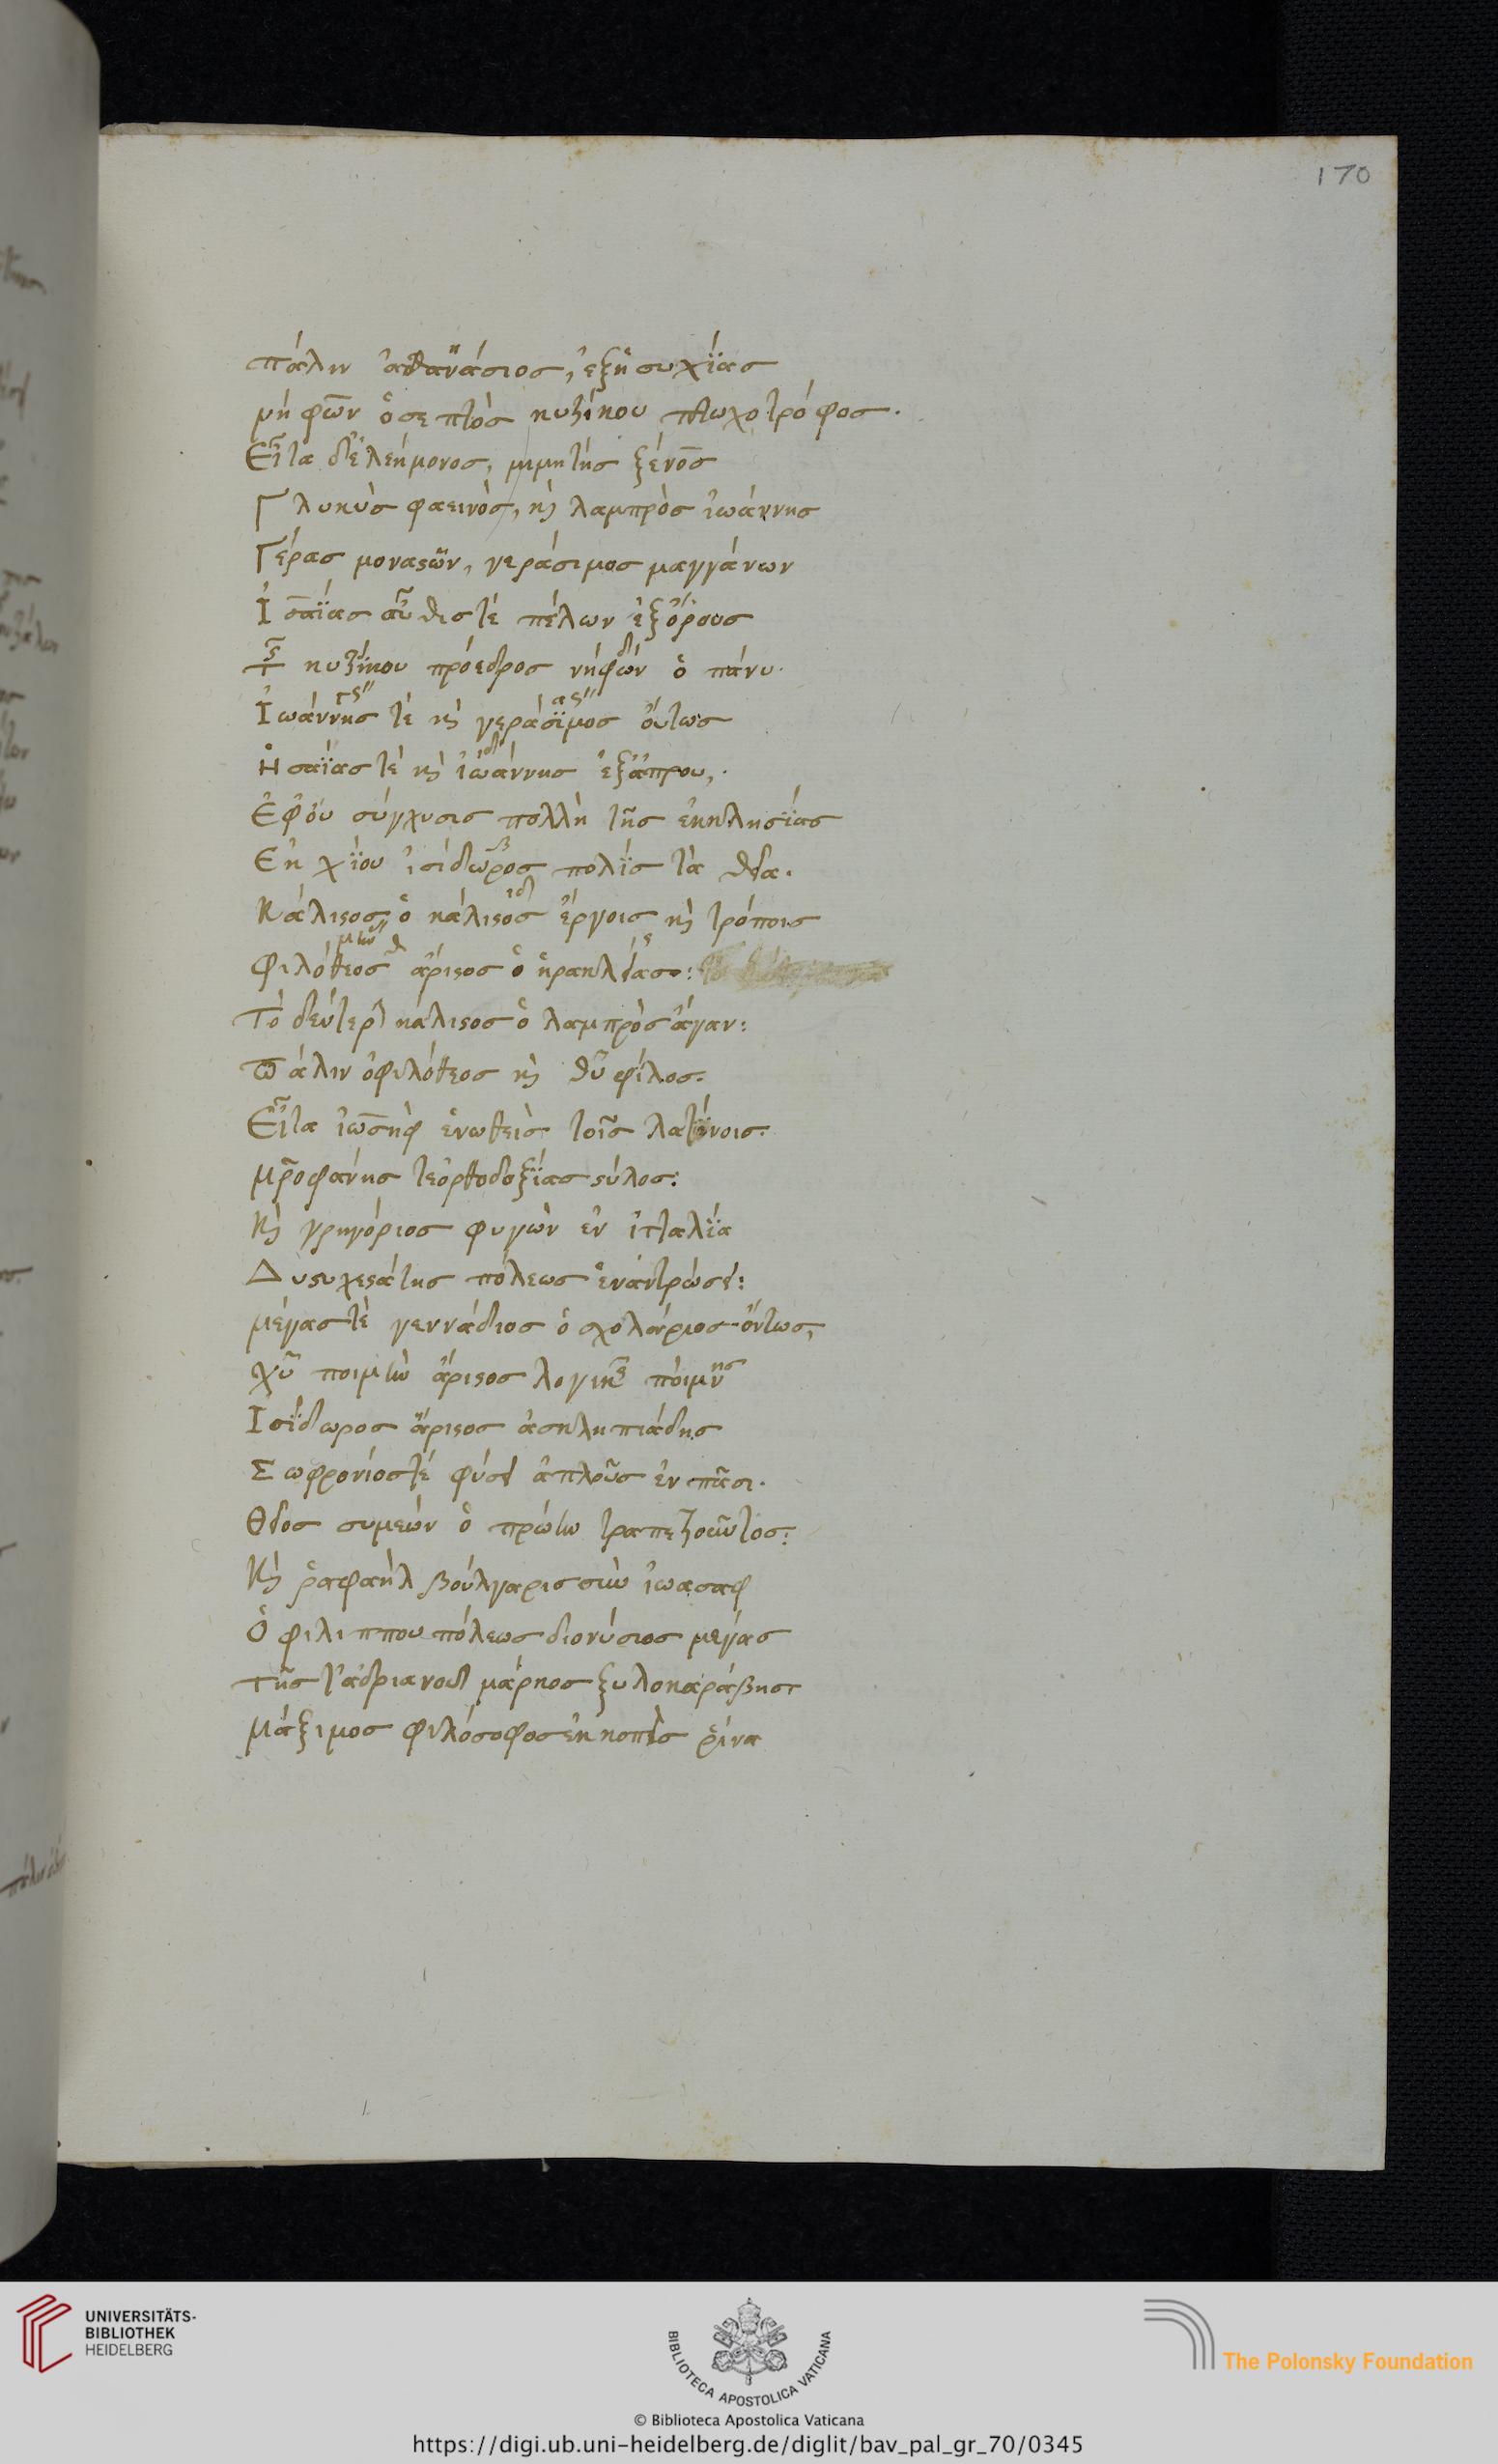 170
πάλιν ἀθανάσιος, ἐξἡσυχίας
μήφων ὁσεπτὸς κυζίκου πτωχοτρόφος.
Εἶτα δ'ἐλεήμονος, μιμητὴς ξένος
Γλυκὺς φαεινὸς, κὶ λαμπρὸς ἰωάννης
Γέρας μοναςῶν, γεράσιμος μαγγάνων
Ἰσαΐας αὖθιστὲ πέλων ἐξὄρους
κυζίκου πρόεδρος νήφων ὁ πάνυ.
Ἰωάννης τὲ κὶ γεράσϊμος ὄυτως
Ἡσαΐαςτὲ κὶ ἰωάννης ἐξἄπρου,.
Ἐφ'ὁυ σύγχυσις πολλὴ τῆς ἐκκλησΐας
Ἐκ χΐου ἰσίδωρος πολῒς τὰ θεῖα.
Κάλιςος ὁ κάλιςος ἔργοις κὶ τρόποις
Φιλόθεος ἄριςος ὁ ἡρακλείας:
Τὸ δεύτερον κάλιςος ὁ λαμπρὸς ἄγαν:
Πάλιν ὁφιλόθεος κὶ θῦ φίλος.
Εἶτα ἰωσὴφ ἑνωθεὶς τοῖς λατίνοις:
μροφάνης τεὀρθοδοξΐας ςύλος:
Κὶ γρηγόριος φυγὼν ἐν ἰταλΐα
Δυςυχεςάτης πόλεως
μέγαςτὲ γεννάδιος ὁ σχολάριος ὄντως,
χῦ ποιμὴν ἄριςος λογικῆς ποίμνης
Ἰσΐδωρος ἄριςος ἀσκληπιάδης
Σωφρονίοςτέ φύσει ἁπλοῦς ἐν πᾶσι.
Θεῖος συμεὼν ὁ πρώην τραπεζοῦντος:
Κὶ ῥαφαὴλ βούλγαρις σὺν ἰωασαφ
Ὁ φιλιππουπόλεως διονύσιος μέγας
Τῆς τ'ἀδριανοῦ μάρκος ξυλοκαράβης
Μάξιμος φιλόσοφος ἐκκοπεὶς ῥίνα
UNIVERSITÄTS-
BIBLIOTHEK
HEIDELBERG
BIBLIOTECA APOSTOLICA VATICANA
The Polonsky Foundation
© Biblioteca Apostolica Vaticana
https://digi.ub.uni-heidelberg.de/diglit/bav_pal_gr_70/0345